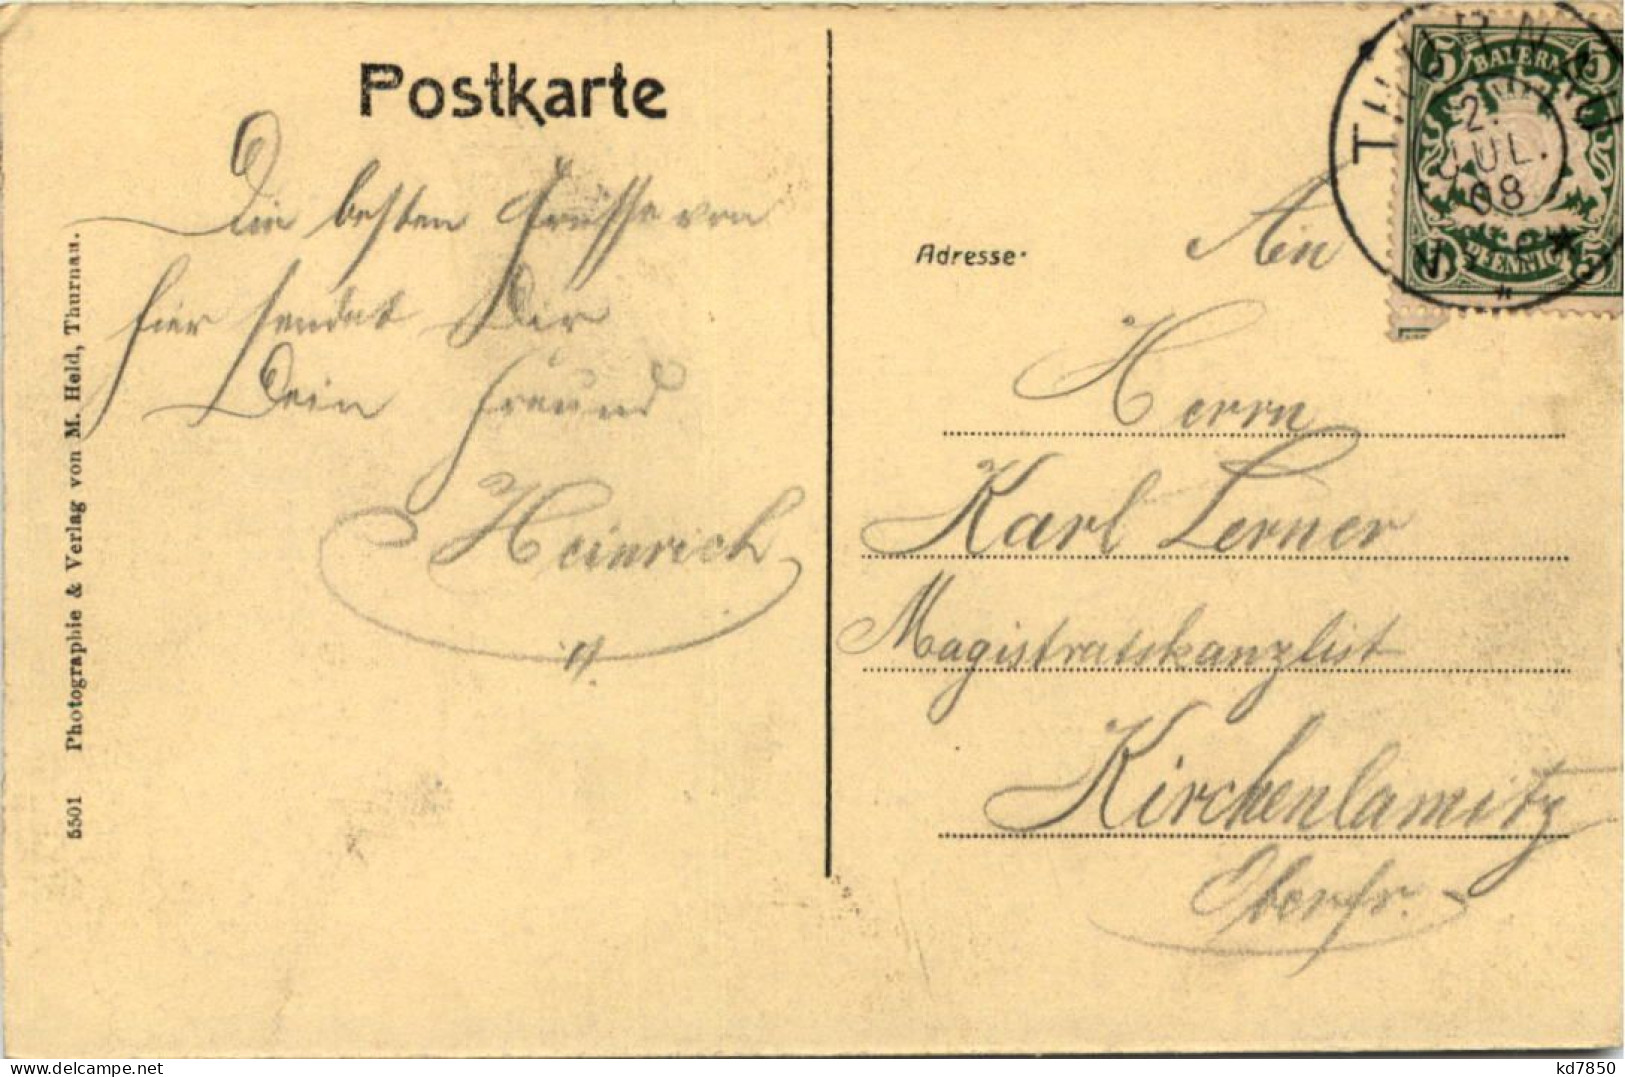 Postkarte
Die besten Grüsse von
hier sendet Dir
Dein Freund
Heinrich
5501 Photographie & Verlag von M. Held, Thurnau.
THURNAU
2.
JUL.
08
5 BAYERN 5
5 PFENNIG 5
Adresse:
An
Herrn
Karl Lerner
Magistratskanzlist
Kirchenlamitz
Oberfr.
kd7850